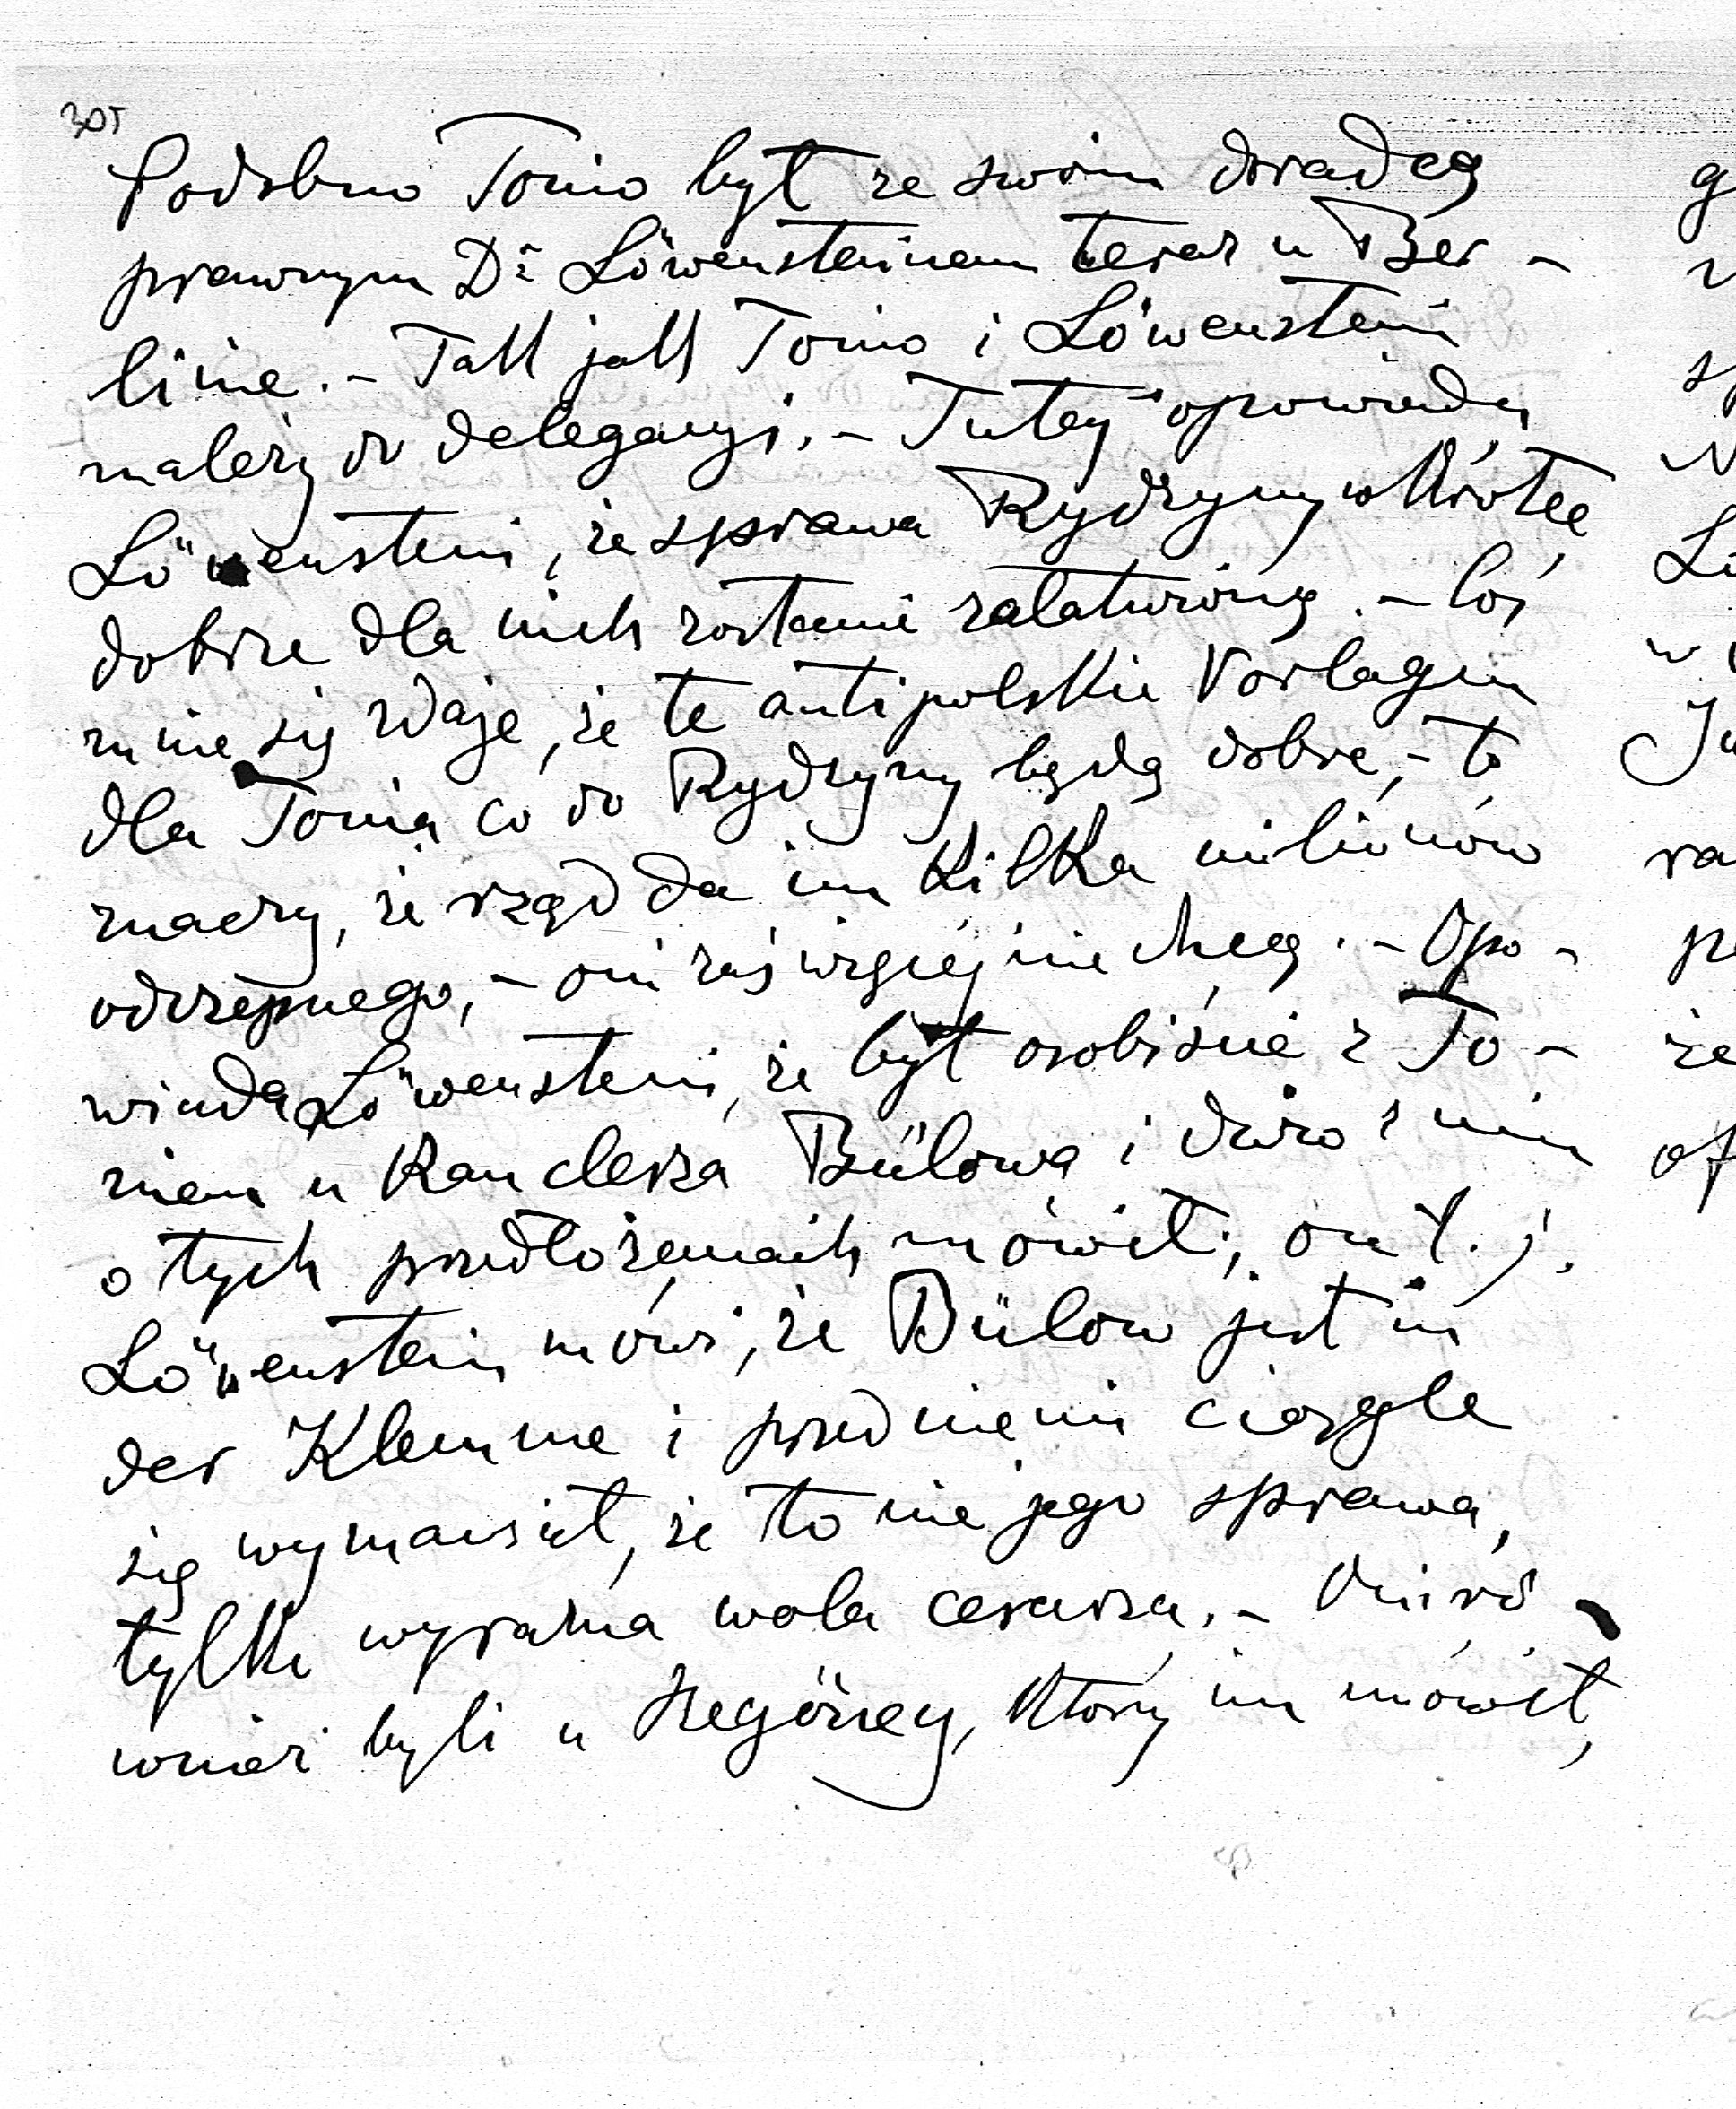 305
Podobno Tonio był ze swoim doradcą
prawnym Dr Löwensteinem teraz w Ber-
linie. – Tak jak Tonio i Löwenstein
należy do delegacyi. – Tutej opowiada
Löwenstein, że sprawa Rydzyny wkrótce
dobrze dla nich zostanie załatwioną. – Coś
mnie się zdaje, że te antipolskie Vorlagen
dla Tonia co do Rydzyny będą dobre, – to
znaczy, że rząd da im kilka milionów
odczepnego, – oni zaś więcej nie chcą. – Opo-
wiada Löwenstein, że był osobiście z To-
niem u Kanclerza Bülowa i dużo z nim
o tych przedłożeniach mówił; on t. j.
Löwenstein mówi, że Bülow jest in
der Klemme i przed niemi ciągle
się wymawiał, że to nie jego sprawa,
tylko wyraźna wola cesarza. –
wnież byli u Szögyeny, który im mówił,